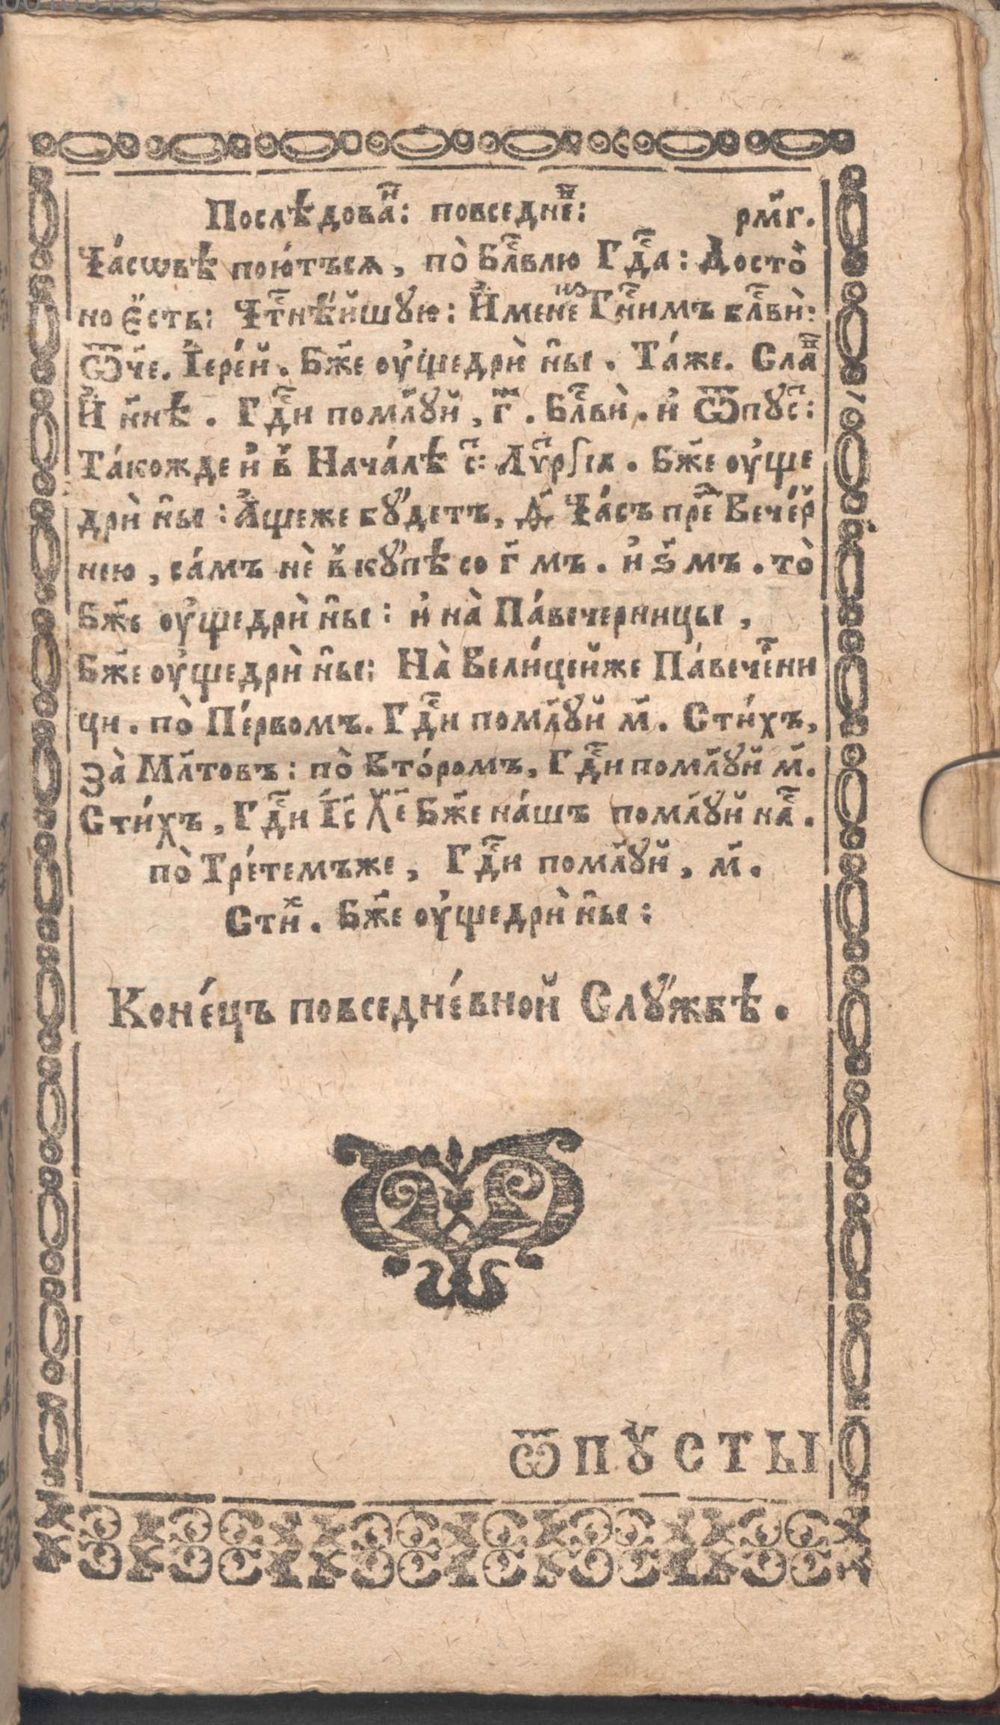 Послѣдова́н҃: повседне҃в: рм҃г.
Ча́сѡвѣ пою́тъся, по̀ Бл҃влю Гдⷭ҇а: До́сто
но є҆́сть: Чⷭ҇тнѣ́йшую: И҆́мене Гⷭ҇нимъ бл҃ви̑:
Ѿч҃е. І҆ере́й. Бж҃е оу҆щедри̑ н҃ы. Та́же. Сла́в
И҆ нн҃ѣ. Гдⷭ҇и пом҃луй, г҃. Бл҃ви̑. и҆ ѿпу́с:
Та́кожде и҆ в̾ Нача́лѣ с: Лѵ҃ргїѧ. Бж҃е оу҆ще
дри̑ н҃ы: А҆́щеже бу́детъ, Ѳ҃ Ча́съ пре Вече́р
нею, са́мъ не̑ вку́пѣ со г҃ мъ. и҆ ѕ҃ мъ. то̀
Бж҃е оу҆щедри̑ н҃ы: и҆ на̀ Па́вечерницы,
Бж҃е оу҆щедри̑ н҃ы: На̀ Вели́цейже Па́вече́рни
ци. по̀ Пе́рвомъ. Гдⷭ҇и пом҃луй м҃. Сти́хъ,
За̀ Мл҃товъ: по̀ Вто́ромъ, Гдⷭ҇и пом҃луй м҃.
Сти́хъ, Гдⷭ҇и І҆с҃ Хе҃ Бж҃е на́шъ пом҃луй наⷭ҇.
по̀ Тре́темъже, Гдⷭ҇и пом҃луй, м҃.
Стиⷯ. Бж҃е оу҆щедри̑ н҃ы:
Коне́цъ повседне́вной Слу́жбѣ.
ѾПУСТЫ